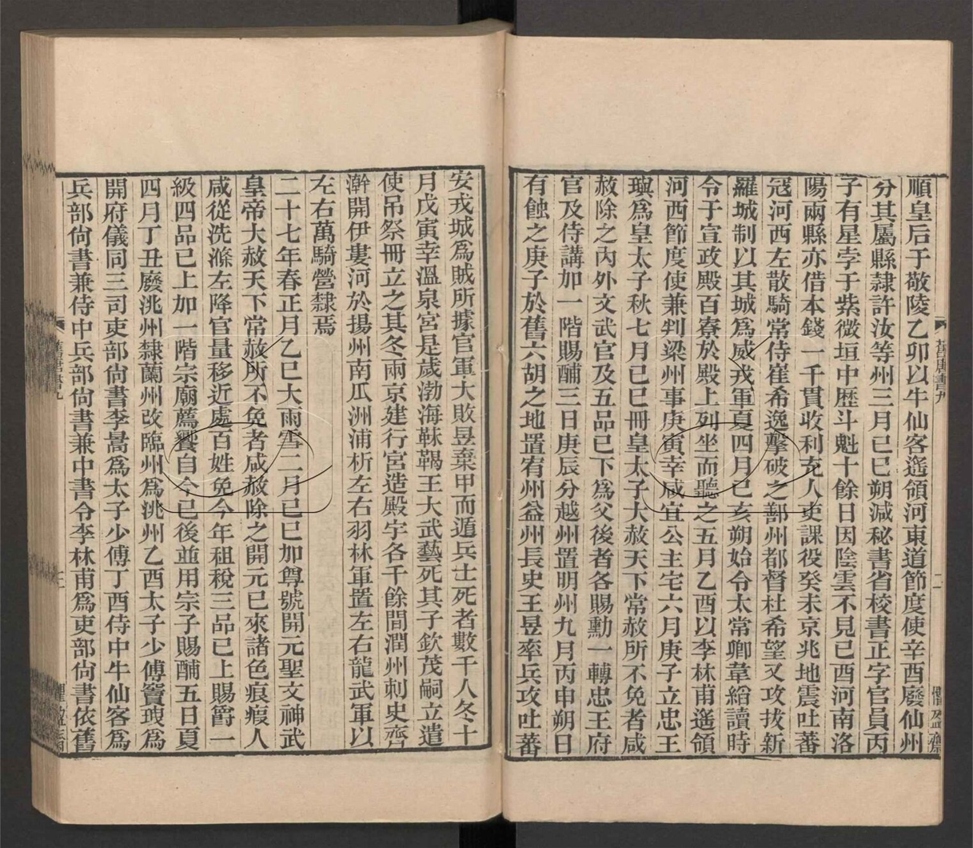 順皇后于敬陵乙卯以牛仙客遙領河東道節度使辛酉廢仙州
分其屬縣隸許汝等州三月己巳朔減秘書省校書正字官員丙
子有星孛于紫微垣中歷斗魁十餘日因陰雲不見己酉河南洛
陽兩縣亦借本錢一千貫收利充人吏課役癸未京兆地震吐蕃
寇河西左散騎常侍崔希逸擊破之鄯州都督杜希望又攻拔新
羅城制以其城爲威戎軍夏四月己亥朔始令太常卿韋縚讀時
令于宣政殿百寮於殿上列坐而聽之五月乙酉以李林甫遙領
河西節度使兼判梁州事庚寅幸咸宜公主宅六月庚子立忠王
璵爲皇太子秋七月己巳冊皇太子大赦天下常赦所不免者咸
赦除之內外文武官及五品已下爲父後者各賜勳一轉忠王府
官及侍講加一階賜酺三日庚辰分越州置明州九月丙申朔日
有蝕之庚子於舊六胡之地置宥州益州長史王昱率兵攻吐蕃
舊唐書九
安戎城爲賊所據官軍大敗昱棄甲而遁兵士死者數千人冬十
月戊寅幸溫泉宮是歲渤海靺鞨王大武藝死其子欽茂嗣立遣
使吊祭冊立之其冬兩京建行宮造殿宇各千餘間潤州刺史齊
澣開伊婁河於揚州南瓜洲浦析左右羽林軍置左右龍武軍以
左右萬騎營隸焉
二十七年春正月乙巳大雨雪二月己巳加尊號開元聖文神武
皇帝大赦天下常赦所不免者咸赦除之開元已來諸色痕瘕人
咸從洗滌左降官量移近處百姓免今年租稅三品已上賜爵一
級四品已上加一階宗廟薦饗自今已後並用宗子賜酺五日夏
四月丁丑廢洮州隸蘭州改臨州爲洮州乙酉太子少傅竇琠爲
開府儀同三司吏部尚書李暠爲太子少傅丁酉侍中牛仙客爲
兵部尚書兼侍中兵部尚書兼中書令李林甫爲吏部尚書依舊
舊唐書九